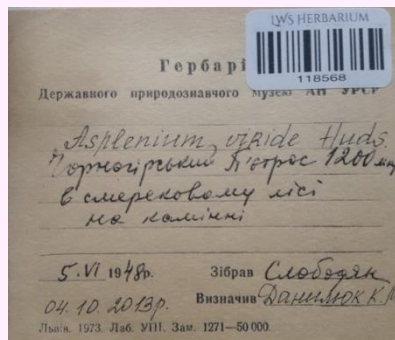 LWS HERBARIUM
118568
Гербарі
Державного природознавчого музею АН УРСР
Asplenium viride Huds.
Чорногірський Петрос 1200
в смерековому лісі
на камінні
5.VI 1948р. Зібрав Слободян
04.10.2013р. Визначив Данилюк К.М
Львів. 1973. Лаб. УПІ. Зам. 1271—50 000.